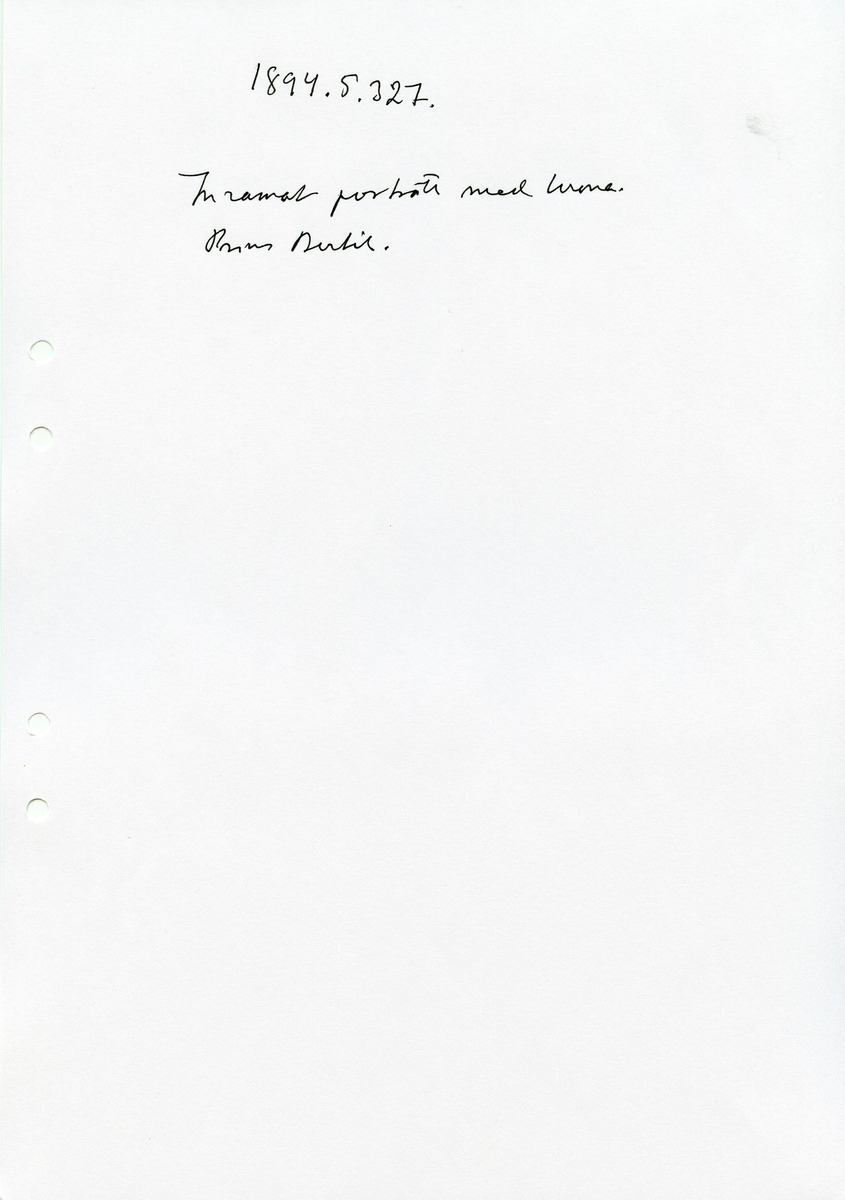 1894.5.327.
Inramat porträtt med krona.
Prins Bertil.